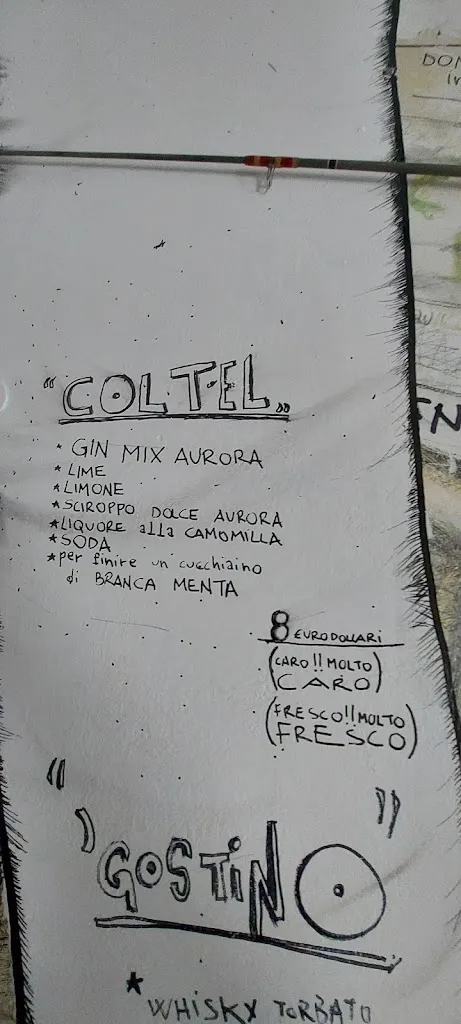 DON
"COLTEL"
* GIN MIX AURORA
* LIME
* LIMONE
* SCIROPPO DOLCE AURORA
* LIQUORE alla CAMOMILLA
* SODA
* per finire un cucchiaino
di BRANCA MENTA
8 EURODOLLARI
(CARO!! MOLTO
CARO)
(FRESCO!! MOLTO
FRESCO)
"'GOSTINO"
* WHISKY TORBATO